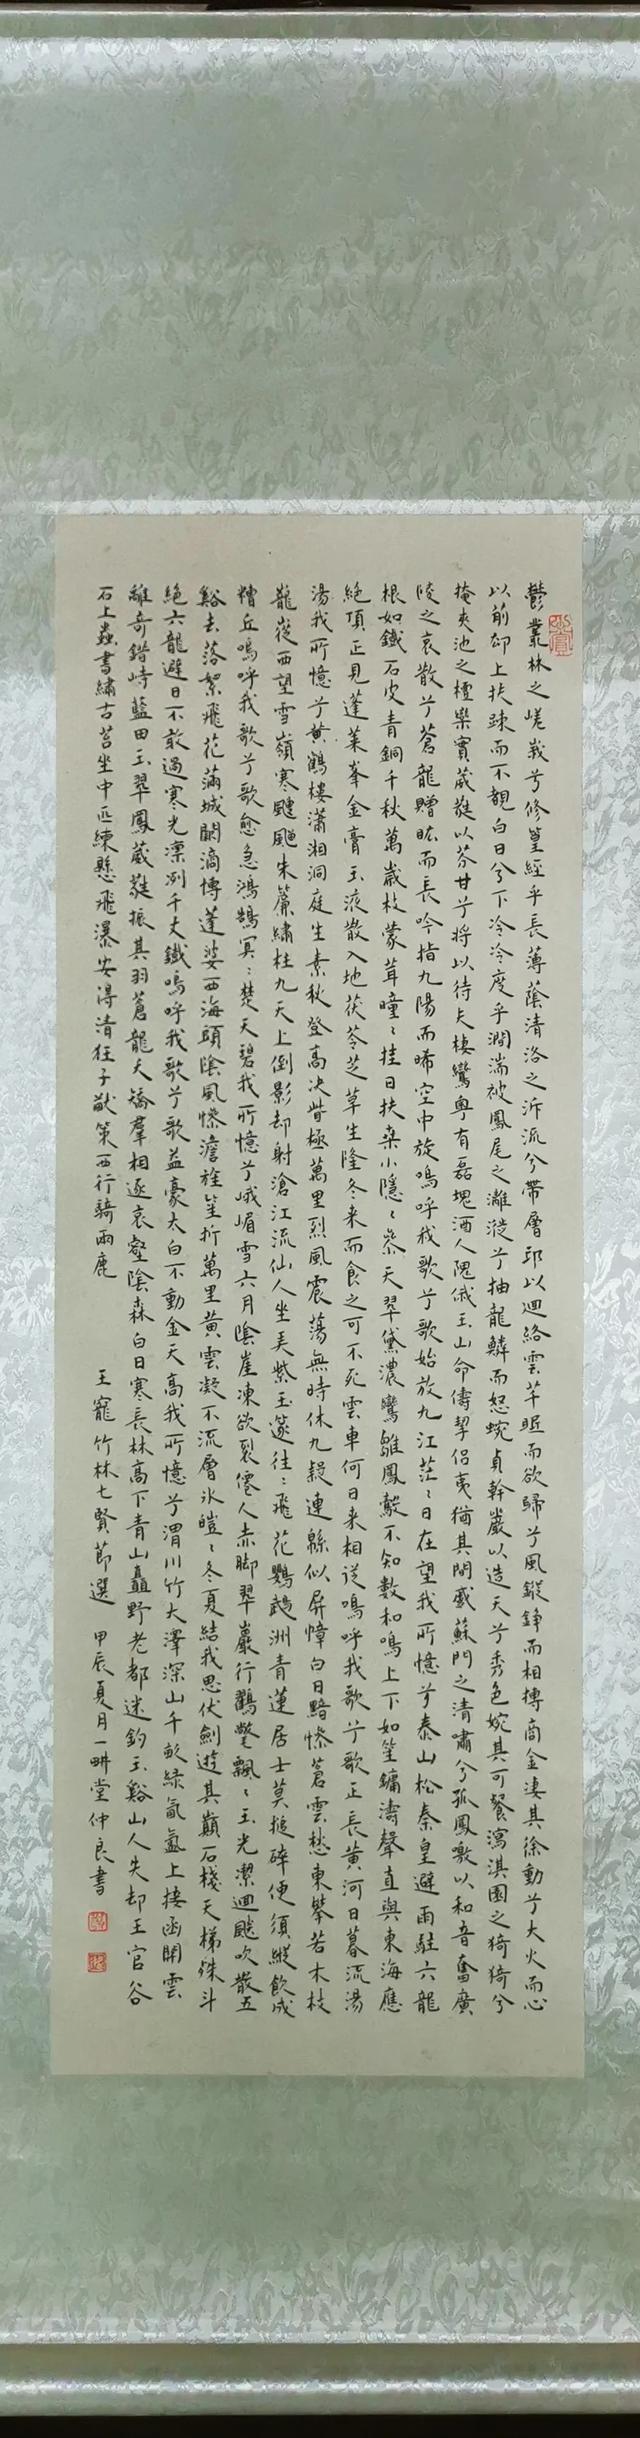 鬱叢林之嵯峩兮修篁經乎長薄蔭清洛之泝流兮帶層邱以迴絡雲芊眠而欲歸兮風鏦錚而相搏商金淒其徐動兮大火而心
以前却上扶疎而不覩白日兮下泠泠度乎澗湍被鳳尾之灕漇兮抽龍鱗而怒蜿貞幹巖以造天兮秀色婉其可餐瀉淇園之猗猗兮
掩夾池之檀欒實葳蕤以芬甘兮將以待夫棲鸞粤有磊塊酒人隗俄玉山命儔挈侶夷猶其間感蘇門之清嘯兮孤鳳噭以和音奮廣
陵之哀散兮蒼龍贈眩而長吟指九陽而晞空中旋嗚呼我歌兮歌始放九江茫茫日在望我所憶兮泰山松秦皇避雨駐六龍
根如鐵石皮青銅千秋萬歲枝蒙茸曈曈挂日扶桒小隱隱參天翠黛濃鸞雛鳳鷇不知數和鳴上下如笙鏞濤聲直與東海應
絕頂正見蓬萊峯金膏玉液散入地茯苓芝草生隆冬来而食之可不死雲車何日来相從嗚呼我歌兮歌正長黄河日暮流湯
湯我所憶兮黄鶴樓瀟湘洞庭生素秋登高決眥極萬里烈風震蕩無時休九疑連緜似屏幛白日黯慘蒼雲愁東攀若木枝
龍嵸西望雪嶺寒颼飀朱簾繡柱九天上倒影却射滄江流仙人坐弄紫玉篴往往飛花鸚鵡洲青蓮居士莫搥碎便須縱飲成
糟丘嗚呼我歌兮歌愈急鴻鵠冥冥楚天碧我所憶兮峨嵋雪六月陰崖凍欲裂僊人赤脚翠巖行鸛氅飄飄玉光潔迴飈吹散五
谿去落絮飛花滿城闕滴博蓬婆西海頭陰風慘澹旌竿折萬里黄雲凝不流層冰皚皚冬夏結我思伏劍遊其巔石棧天梯殊斗
絕六龍避日不敢過寒光凜冽千丈鐵嗚呼我歌兮歌益豪太白不動金天高我所憶兮渭川竹大澤深山千畝綠氤氳上接函関雲
離奇錯峙藍田玉翠鳳葳蕤振其羽蒼龍夭矯羣相逐哀壑陰森白日寒長林高下青山矗野老都迷釣玉谿山人失却王官谷
石上蟲書繡古苔坐中匹練懸飛瀑安得清狂子猷策西行騎兩鹿
王寵竹林七賢節選 甲辰夏月一畊堂仲良書